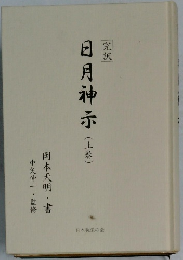 完訳
日月神示
(上巻)
岡本天明・書
中矢伸一・監修